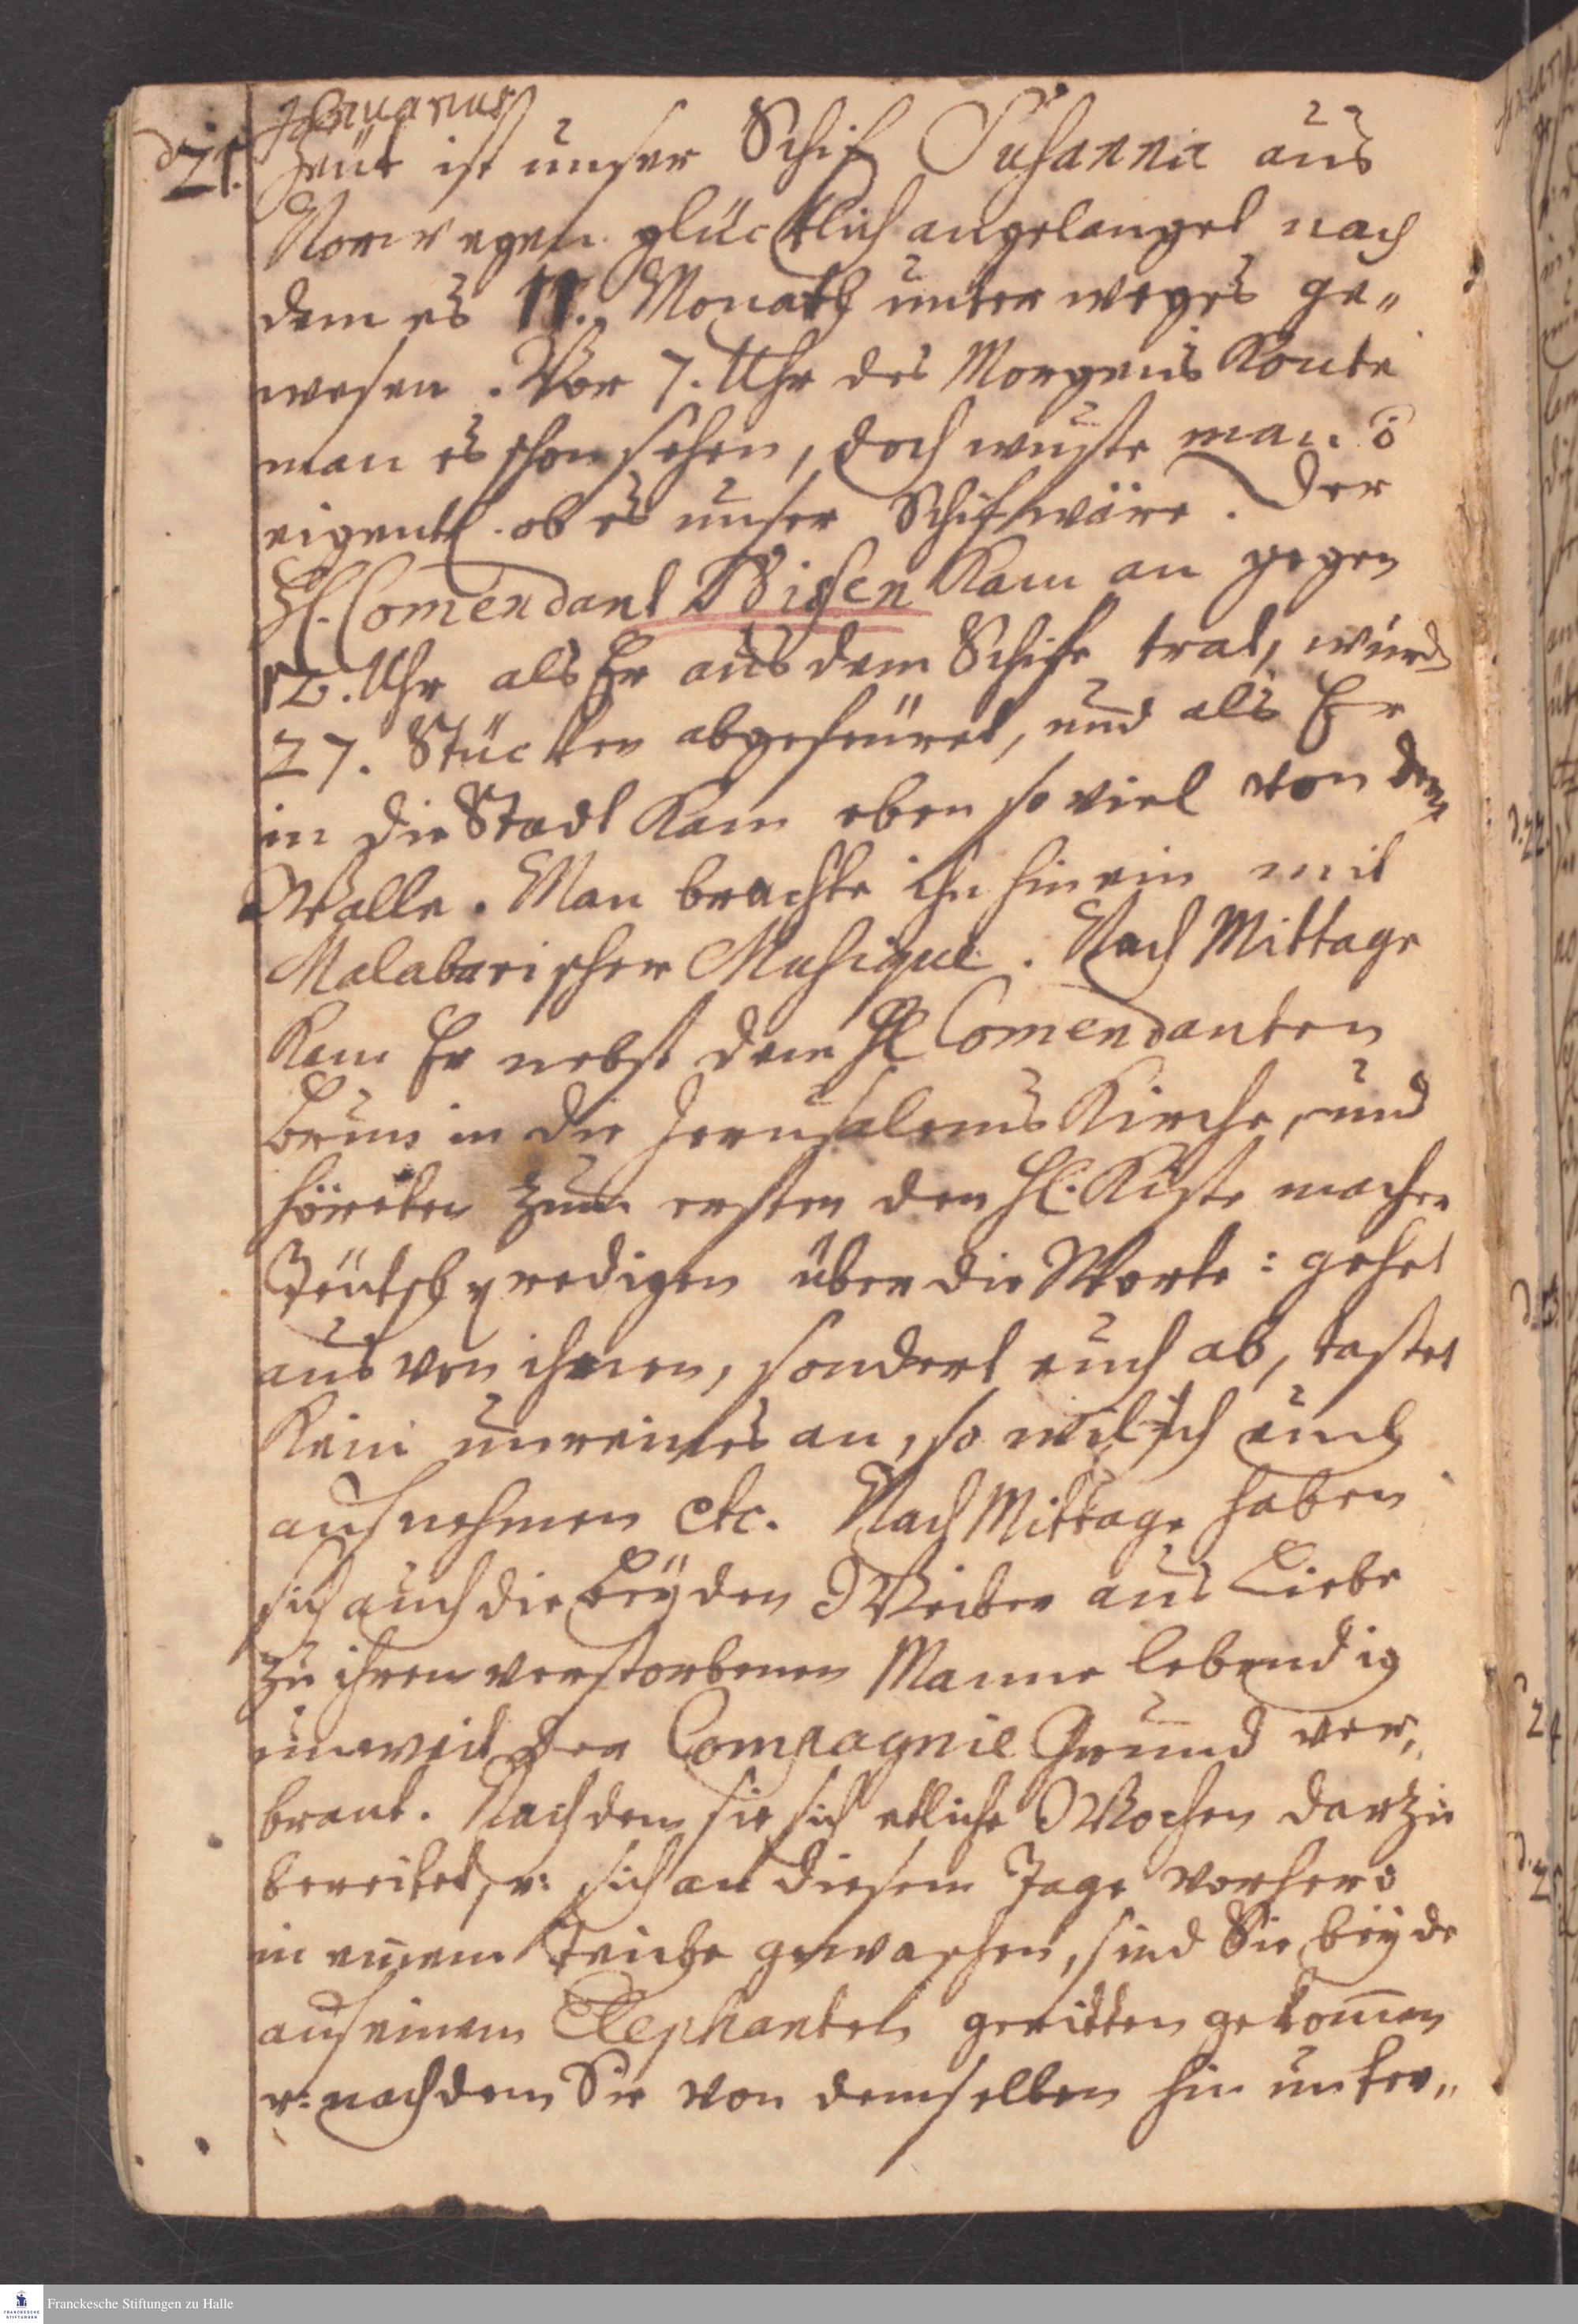 Januarius
d 21. Heut ist unser Schif Susanna aus
Norwegen glücklich angelanget nach
dem es 11. Monath unterweges ge„
wesen. Vor 7. Uhr des Morgens konte
man es schon sehen, doch wuste man ō
eigentl. ob es unser Schif wäre. Der
H. Comendant Bissen kam an gegen
12. Uhr als Er aus dem Schife trat, wurd
27. Stücken abgefeüret, und als Er
in die Stadt kam eben so viel von dem
Walle. Man brachte ihn hinein mit
Malabarischer Musique. Nach Mittage
kam Er nebst dem H Comendanten
Brun in die Jerusalems Kirche, und
höreten zum ersten den H. Kistemacher
Teutsch predigen über die Worte: gehet
aus von ihnen, sondert euch ab, tastet
kein unreines an, so wil ich euch
aufnehmen etc. Nach Mittage haben
sich auch die beÿden Weiber aus Liebe
zu ihren verstorbenen Manne lebendig
unweit der Compagnie Grund ver„
brant. Nachdem sie sich etliche Wochen darzu
bereitet, u: sich an diesem Tage vorhero
in einem Teiche gewaschen, sind Sie beÿde
auf einem Elephanten geritten gekom̄en
u: nachdem Sie von demselben hin unter„
d. 22
d. 23.
d. 24
d. 25.
Franckesche Stiftungen zu Halle